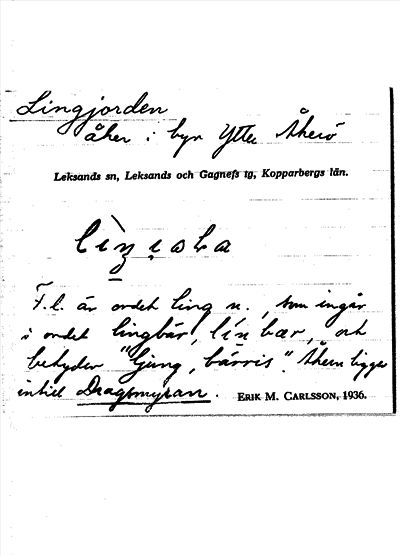 Lingjorden
åker i byn Ytter Åkerö
Leksands sn, Leksands och Gagnefs tg, Kopparbergs län.
F.l. är ordet ling n., som ingår
i ordet lingbär, bær, och
betyder "ljung, bärris". Åkern ligger
intill Dragsmyran.
ERIK M. CARLSSON, 1936.